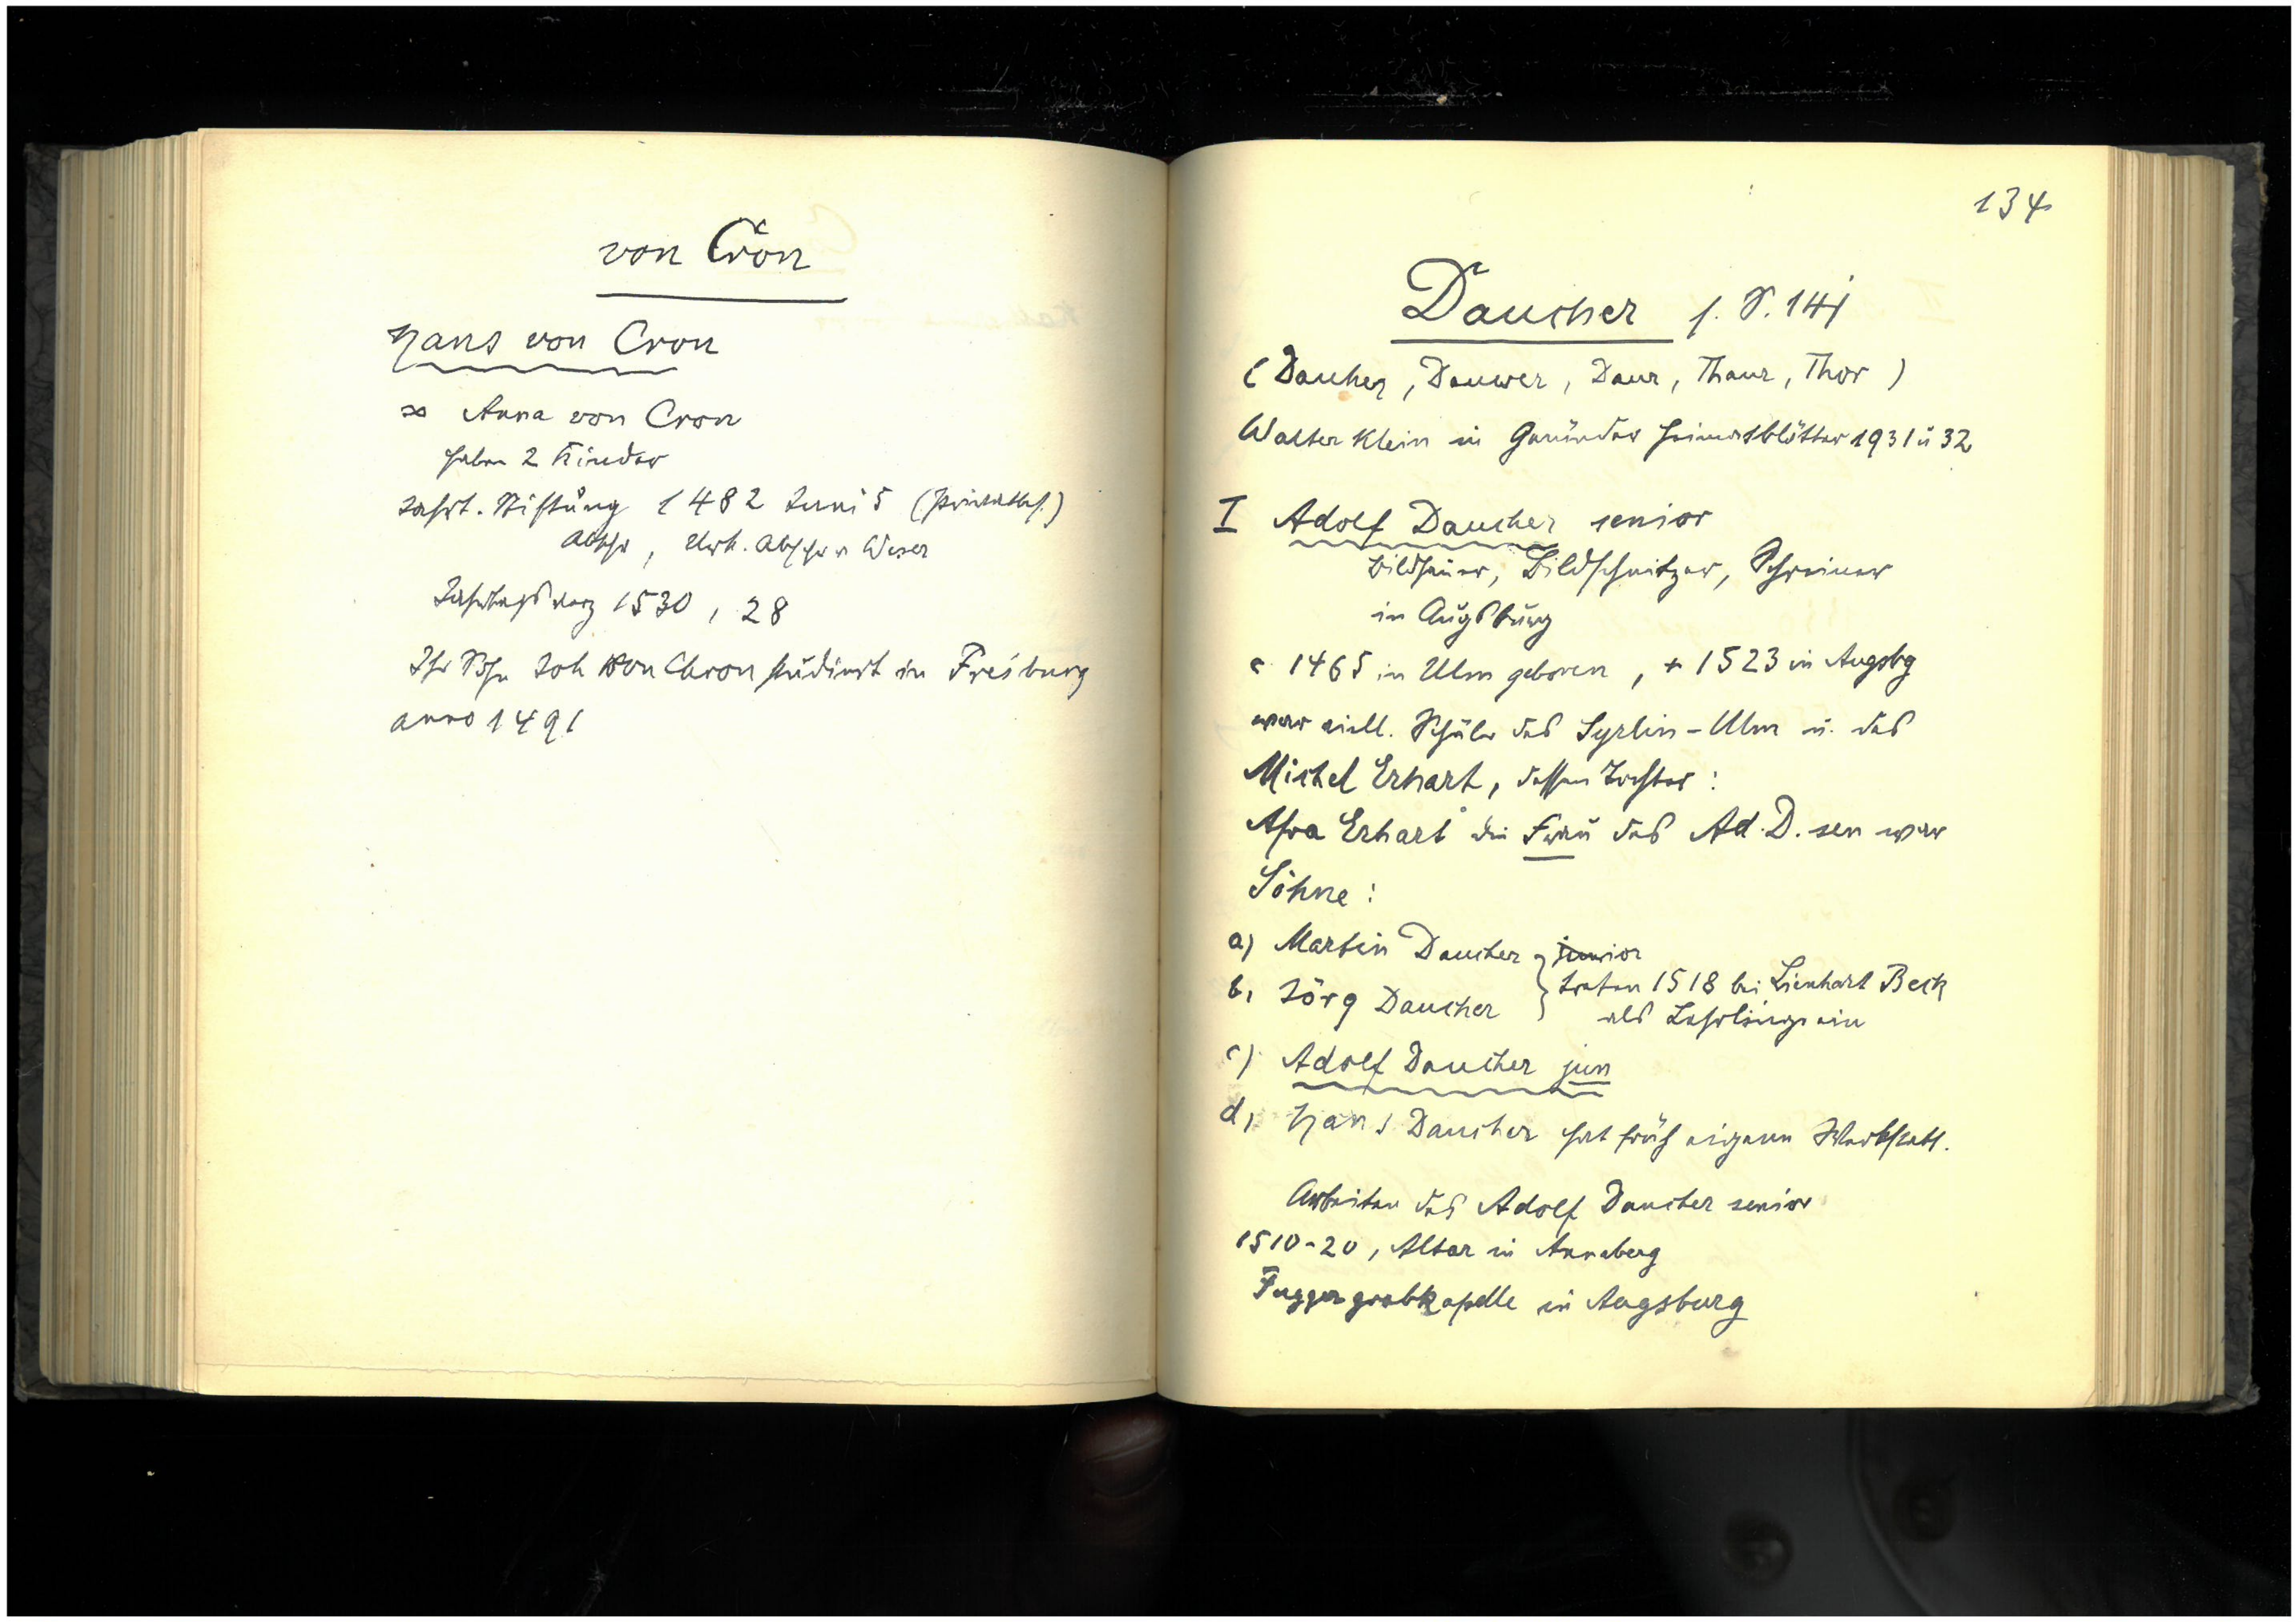 von Cron
Hans von Cron
∞ Anna von Cron
haben 2 Kinder
Jahrt. Stiftung 1482 Juni 5 (Privatbes.)
Abschr, Urk. Abschr v Weser
Jahrtagsverz 1530, 28
Ihr Sohn Joh von Chron studiert in Freiburg
anno 1491
134
Daucher s. S. 141
(Daucher, Dauwer, Daur, Thaur, Thor)
Walter Klein in Gmünder Heimatblätter 1931 u 32
I Adolf Daucher senior
Bildhauer, Bildschnitzer, Schreiner
in Augsburg
c 1465 in Ulm geboren, + 1523 in Augsbg
war viell. Schüler des Syrlin-Ulm u. des
Michel Erhart, dessen Tochter:
Afra Erhart die Frau des Ad. D. sen war
Söhne:
a) Martin Daucher junior
b, Jörg Daucher } traten 1518 bei Lienhart Beck
als Lehrlinge ein
c) Adolf Daucher jun
d, Hans Daucher hat früh eigene Werkstatt.
Arbeiten des Adolf Daucher senior
1510-20, Altar in Annaberg
Fuggergrabkapelle in Augsburg